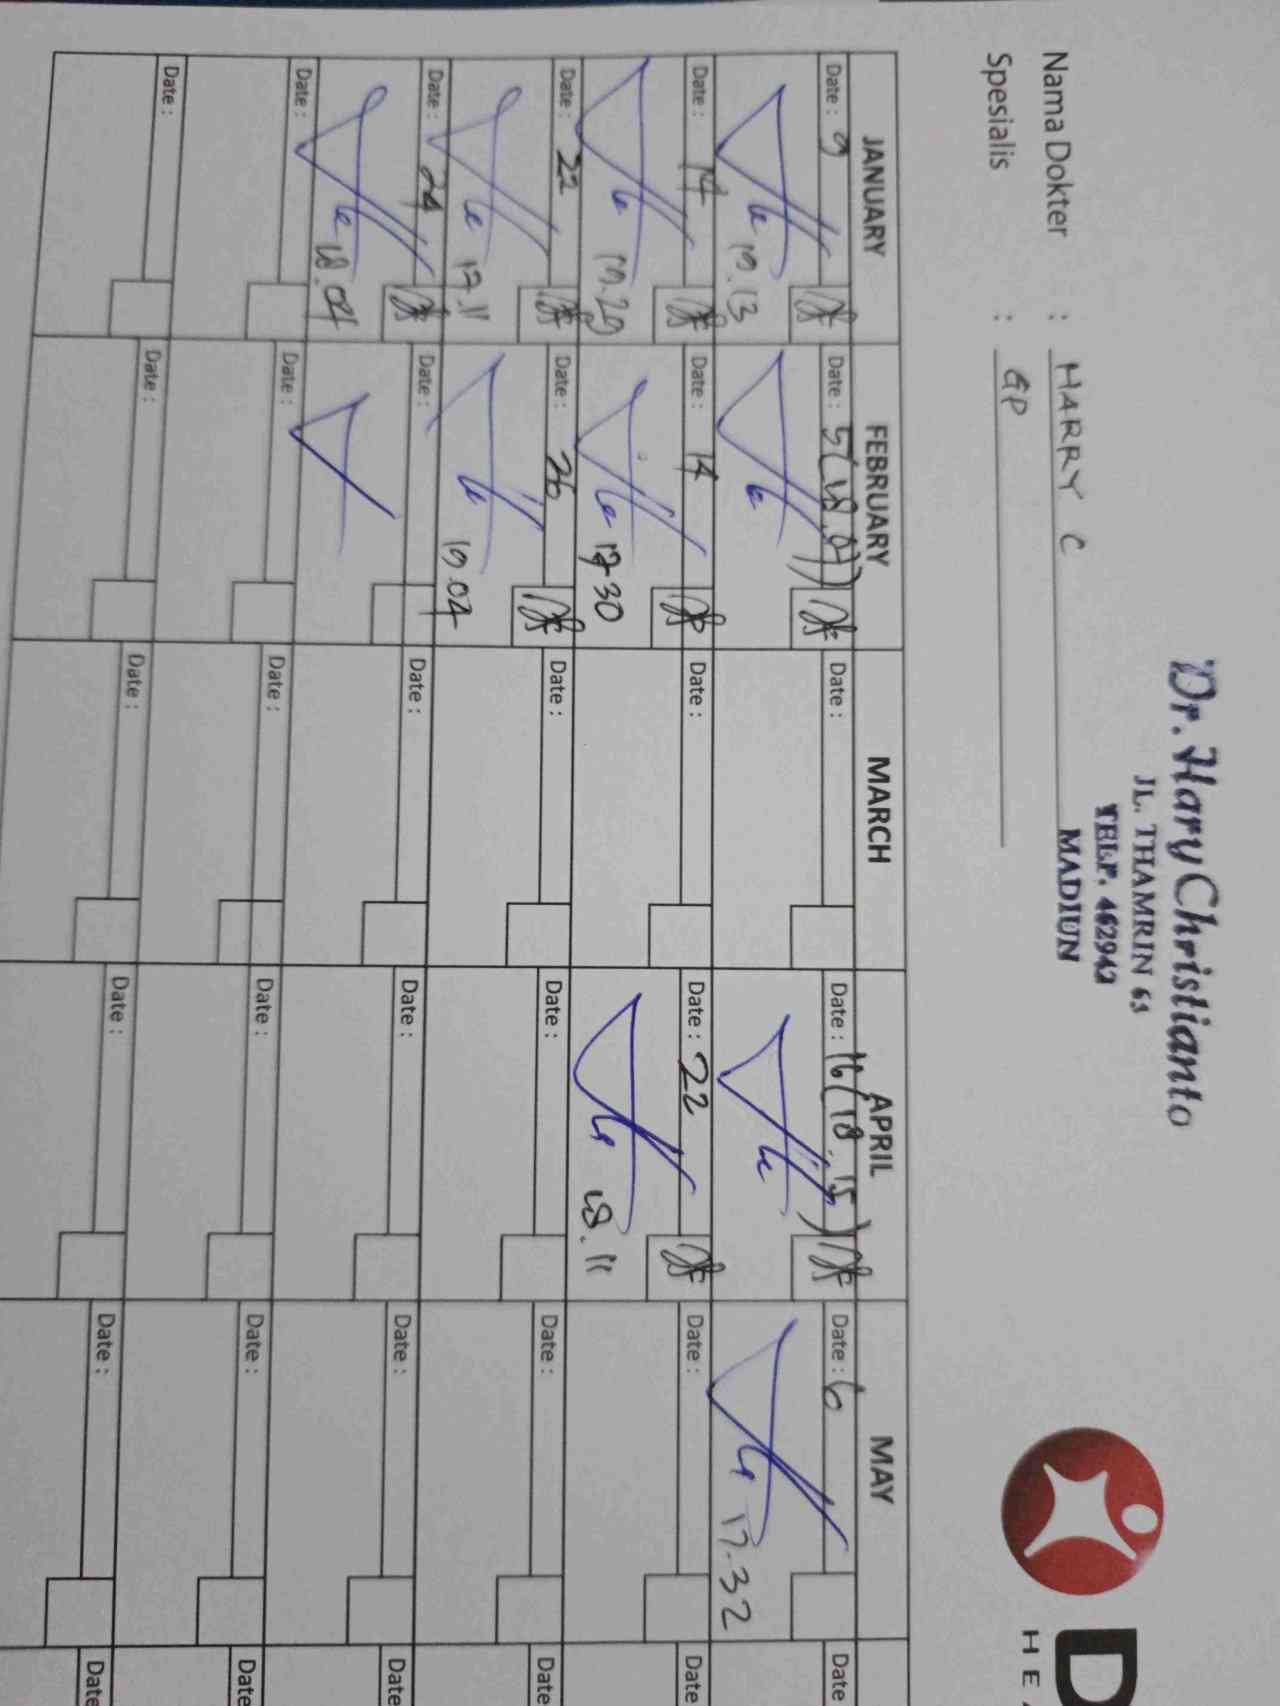 Dr. Hary Christianto
JL. THAMRIN 63
TELP. 462942
MADIUN
D
HEA
Nama Dokter : HARRY C
Spesialis : GP
JANUARY FEBRUARY MARCH APRIL MAY
Date : 9 Date : 5 (18.07) Date : Date : 16 (18.15) Date : 6 Date
19.13 17.32
Date : 14 Date : 14 Date : Date : 22 Date : Date
19.29 17 30 18.11
Date : 22 Date : 26 Date : Date : Date : Date
17.11 19.04
Date : 24 Date : Date : Date : Date : Date
18.04
Date : Date : Date : Date : Date : Date
Date : Date : Date : Date : Date : Date